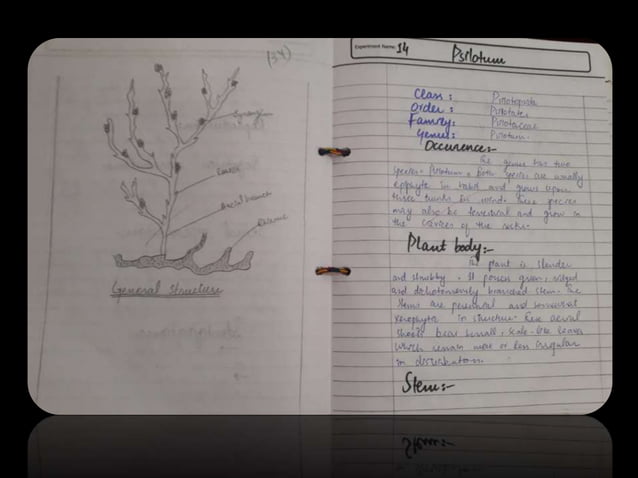 (34)
Synangia
Leaves
Aerial branch
Rhizome
General Structure
Experiment Name 14 Psilotum
Class : Psilotopsida
Order : Psilotales
Family: Psilotaceae
Genus: Psilotum.
Occurences:-
The genus has two
species. Psilotum. Both species are usually
epiphyte in habit and grows upon
tree trunks in wood. These species
may also be terrestrial and grow in
the crevices of the rocks.
Plant body:-
The plant is slender
and shrubby. It possess green, ridged
and dichotomously branched stem. The
stems are perennial and somewhat
xerophytic in structure. The aerial
shoots bear small, scale-like leaves
which remain more or less irregular
in distribution.
Stem:-